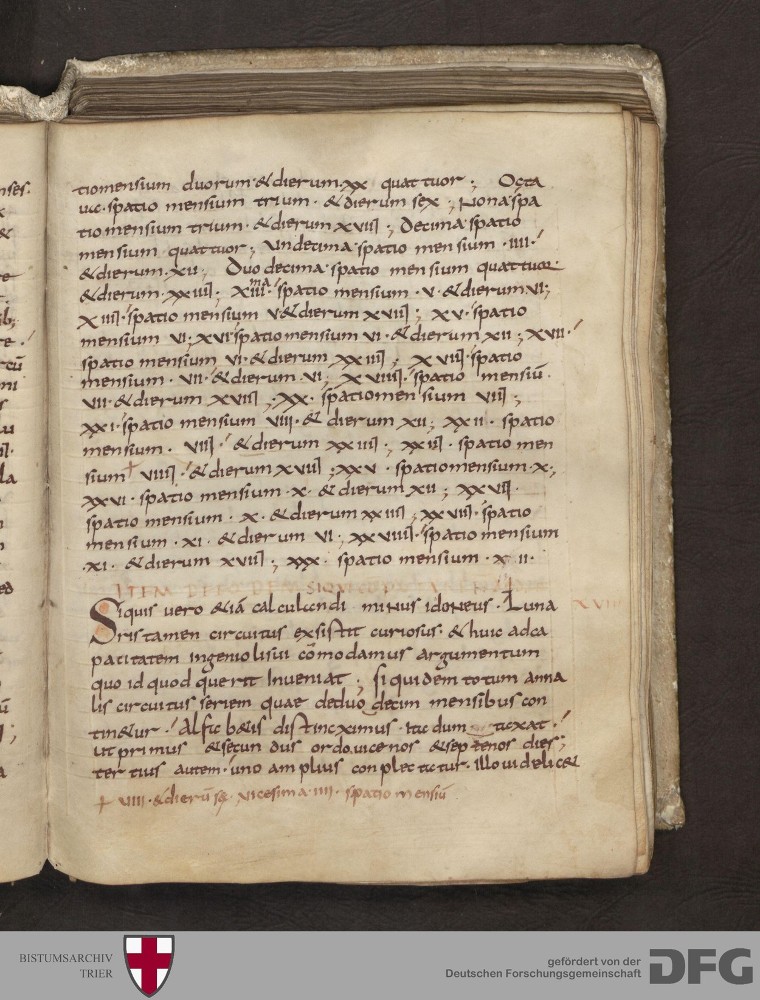 tiomensium duorum·&dierum·xx quattuor; Octa
ua·spatio mensium trium·&dierum sex; Nona spa
tio mensium trium·&dierum xviii; Decima spatio
mensium quattuor; Undecima spatio mensium·iiii·
&dierum·xii; Duodecima spatio mensium quattuor
&dierum·xxiiii; xiii·ma spatio mensium·v·&dierum vi;
xiiii·spatio mensium v&dierum xviii; xv·spatio
mensium vi; xvi spatiomensium vi·&dierum xii; xvii·
spatio mensium vi·&dierum xxiiii; xviii·spatio
mensium·vii·&dierum·vi; xviiii·spatio mensiū·
vii·&dierum xviii; xx·spatiomensium viii;
xxi·spatio mensium viii·&dierum xii; xxii·spatio
mensium·viii·&dierum xxiiii; xxiii·spatio men
sium viiii·&dierum xviii; xxv·spatiomensium·x;
xxvi·spatio mensium·x·&dierum xii; xxvii·
spatio mensium·x·&dierum xxiiii; xxviii·spatio
mensium·xi·&dierum vi; xxviiii·spatio mensium
·xi·&dierum xviii; xxx·spatio mensium·xii·
ITEM DE
Siquis uero &iā calculandi minus idoneus·Luna
ris tamen circuitus exsistit curiosus·&huic adca
pacitatem ingeniolisui cōmodamus argumentum
quo id quod querit Inueniat; siquidem totum anna
lis circuitus seriem quae deduodecim mensibus con
tin&ur·Alfab&is distinximus·ita dum taxat·
ut primus &secundus ordo uicenos &septenos dies;
tertius autem·uno amplius conplectitur·Illo uidelic&
+ viiii·&dierū sex·vicesima·iiii·spatio mensiū
BISTUMSARCHIV
TRIER
gefördert von der
Deutschen Forschungsgemeinschaft
DFG